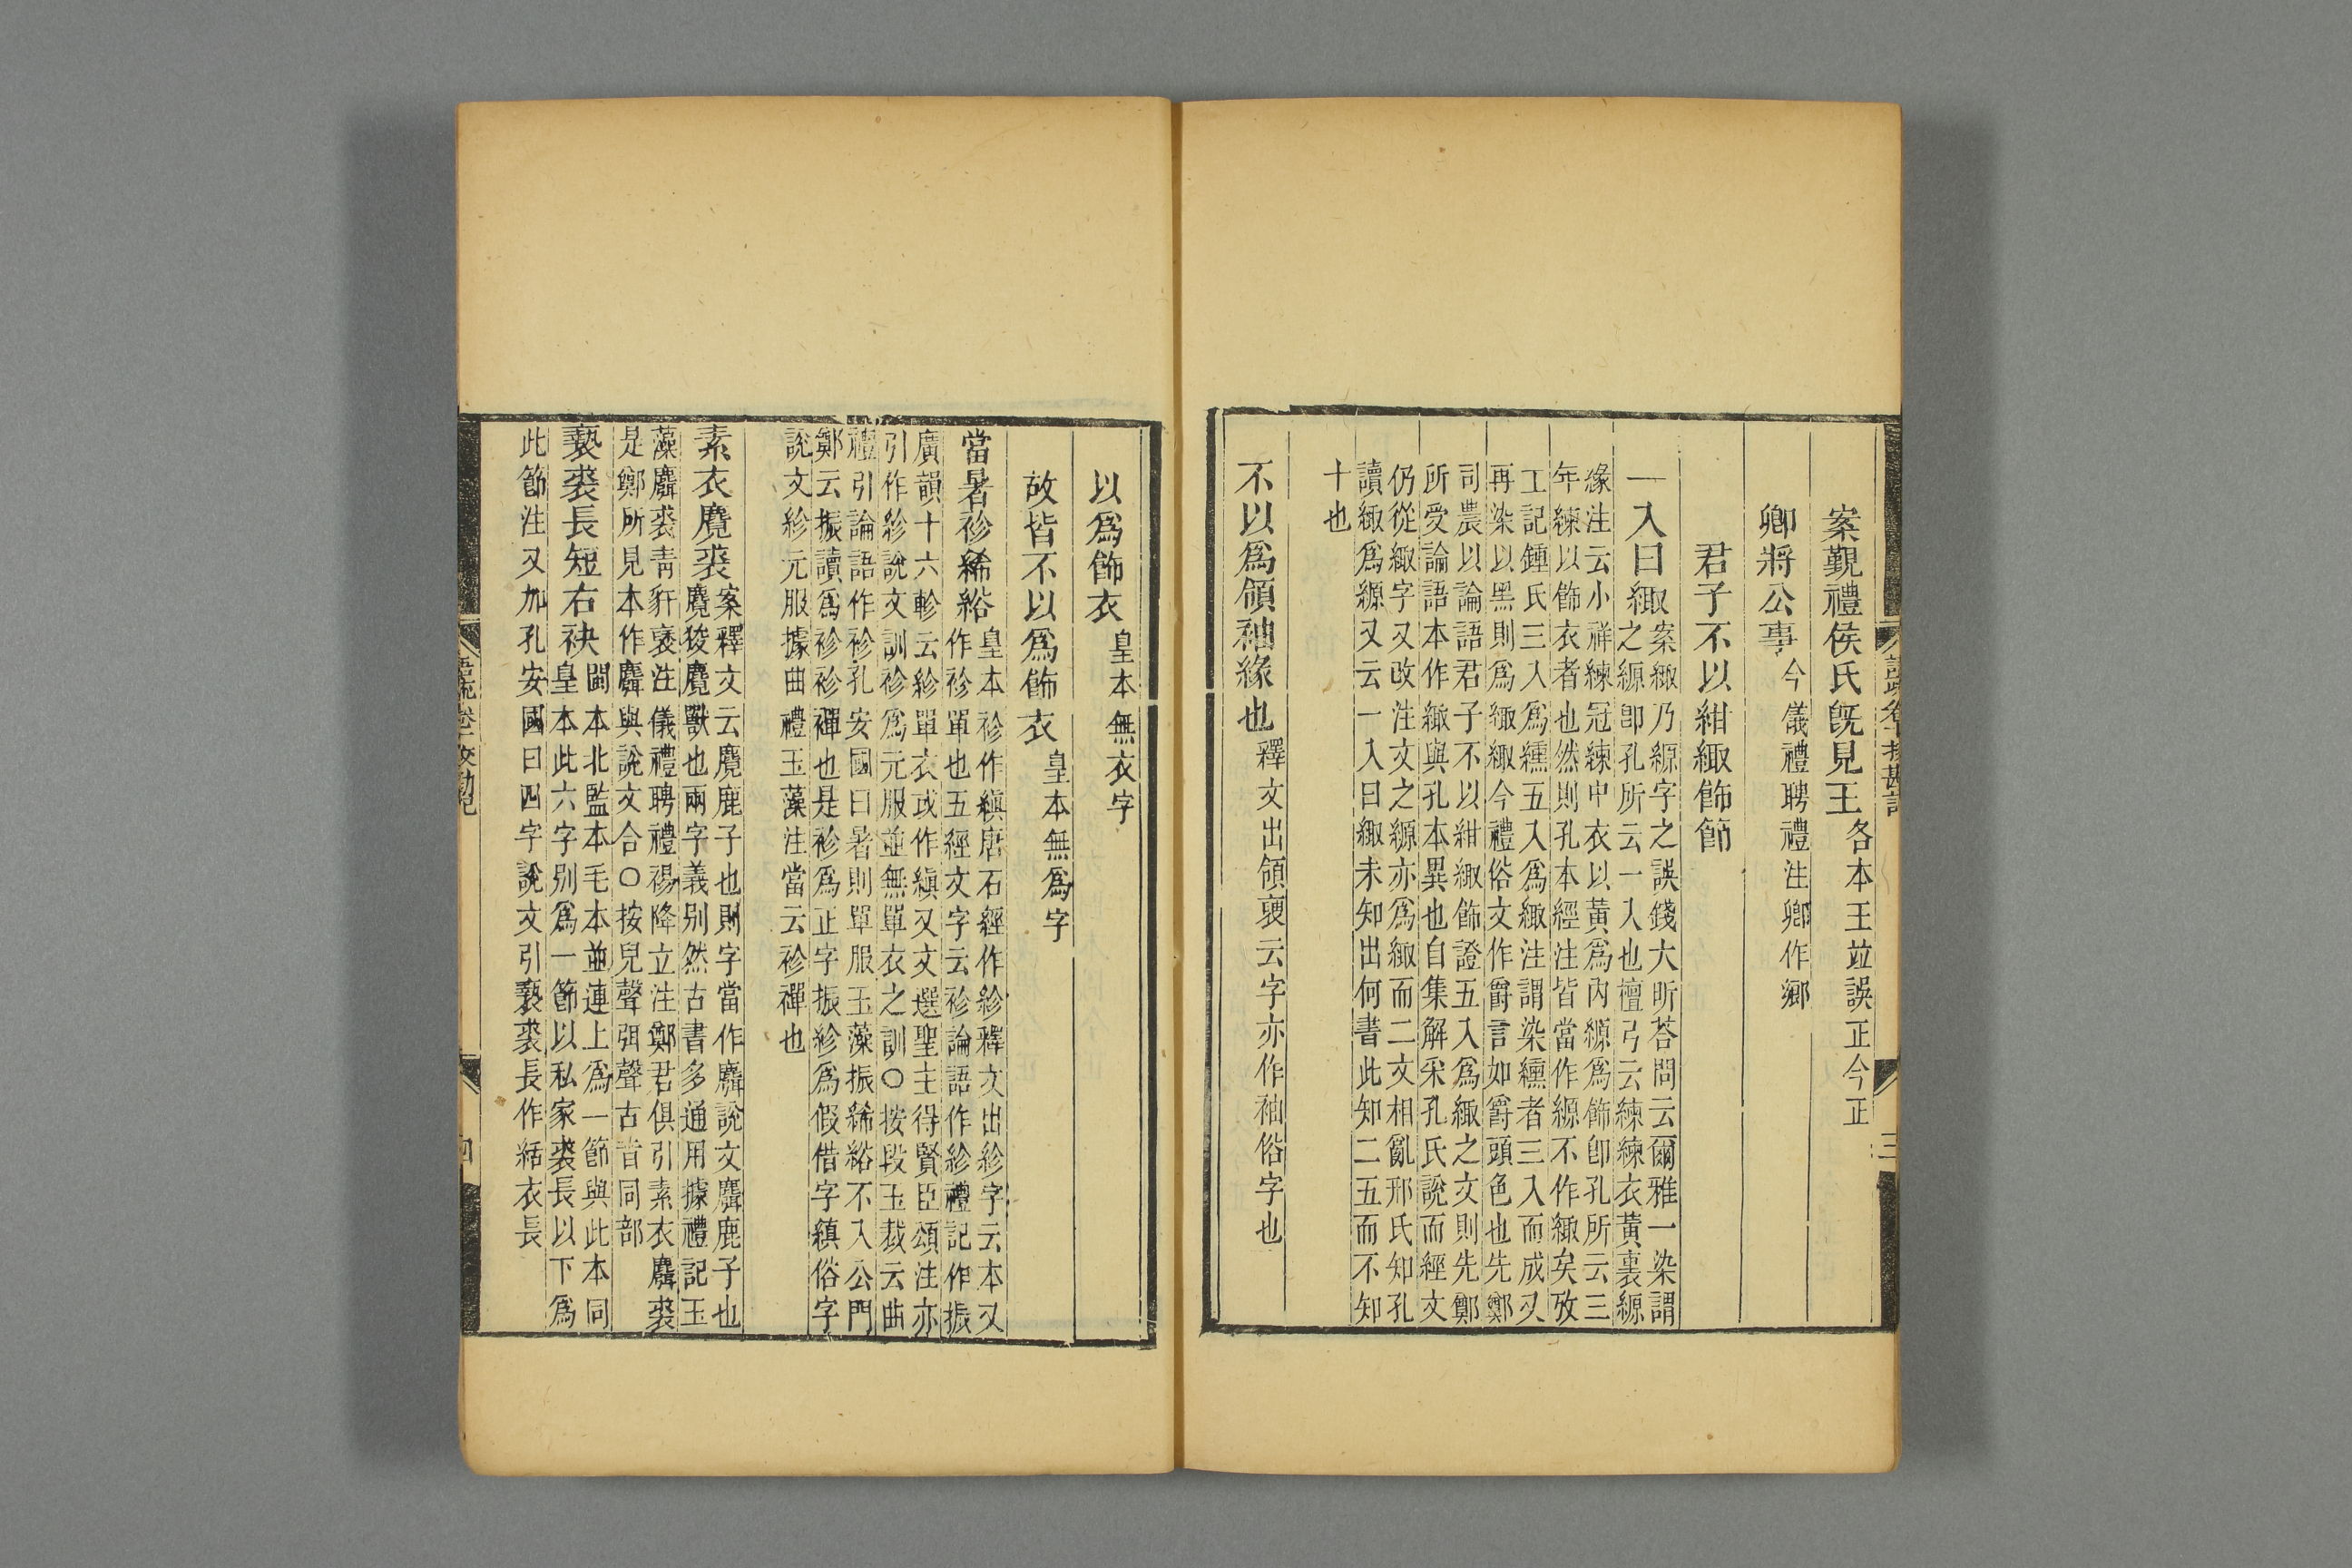 案覲禮侯氏既見王各本王竝誤正今正
卿將公事今儀禮聘禮注卿作鄉
君子不以紺緅飾節
一入曰緅案緅乃縓字之誤錢大昕荅問云爾雅一染謂
之縓卽孔所云一入也檀弓云練練衣黃裏縓
緣注云小祥練冠練中衣以黃爲內縓爲飾卽孔所云三
年練以飾衣者也然則孔本經注皆當作縓不作緅矣攷
工記鍾氏三入爲纁五入爲緅注謂染纁者三入而成又
再染以黑則爲緅緅今禮俗文作爵言如爵頭色也先鄭
司農以論語君子不以紺緅飾證五入爲緅之文則先鄭
所受論語本作緅與孔本異也自集解采孔氏說而經文
仍從緅字又改注文之縓亦爲緅而二文相亂邢氏知孔
讀緅爲縓又云一入曰緅未知出何書此知二五而不知
十也
不以爲領袖緣也釋文出領褎云字亦作袖俗字也
以爲飾衣皇本無衣字
故皆不以爲飾衣皇本無爲字
當暑袗絺綌皇本袗作縝唐石經作紾釋文出紾字云本又
作袗單也五經文字云袗論語作紾禮記作振
廣韻十六軫云紾單衣或作縝又文選聖主得賢臣頌注亦
引作紾說文訓袗爲元服並無單衣之訓○按段玉裁云曲
禮引論語作袗孔安國曰暑則單服玉藻振絺綌不入公門
鄭云振讀爲袗袗襌也是袗爲正字振紾爲假借字縝俗字
說文紾元服據曲禮玉藻注當云袗襌也
素衣麑裘案釋文云麑鹿子也則字當作麛說文麛鹿子也
麑狻麑獸也兩字義別然古書多通用據禮記玉
藻麛裘青豻褎注儀禮聘禮裼降立注鄭君俱引素衣麛裘
是鄭所見本作麛與說文合○按兒聲弭聲古音同部
褻裘長短右袂閩本北監本毛本並連上爲一節與此本同
皇本此六字別爲一節以私家裘長以下爲
此節注又加孔安國曰四字說文引褻裘長作絬衣長